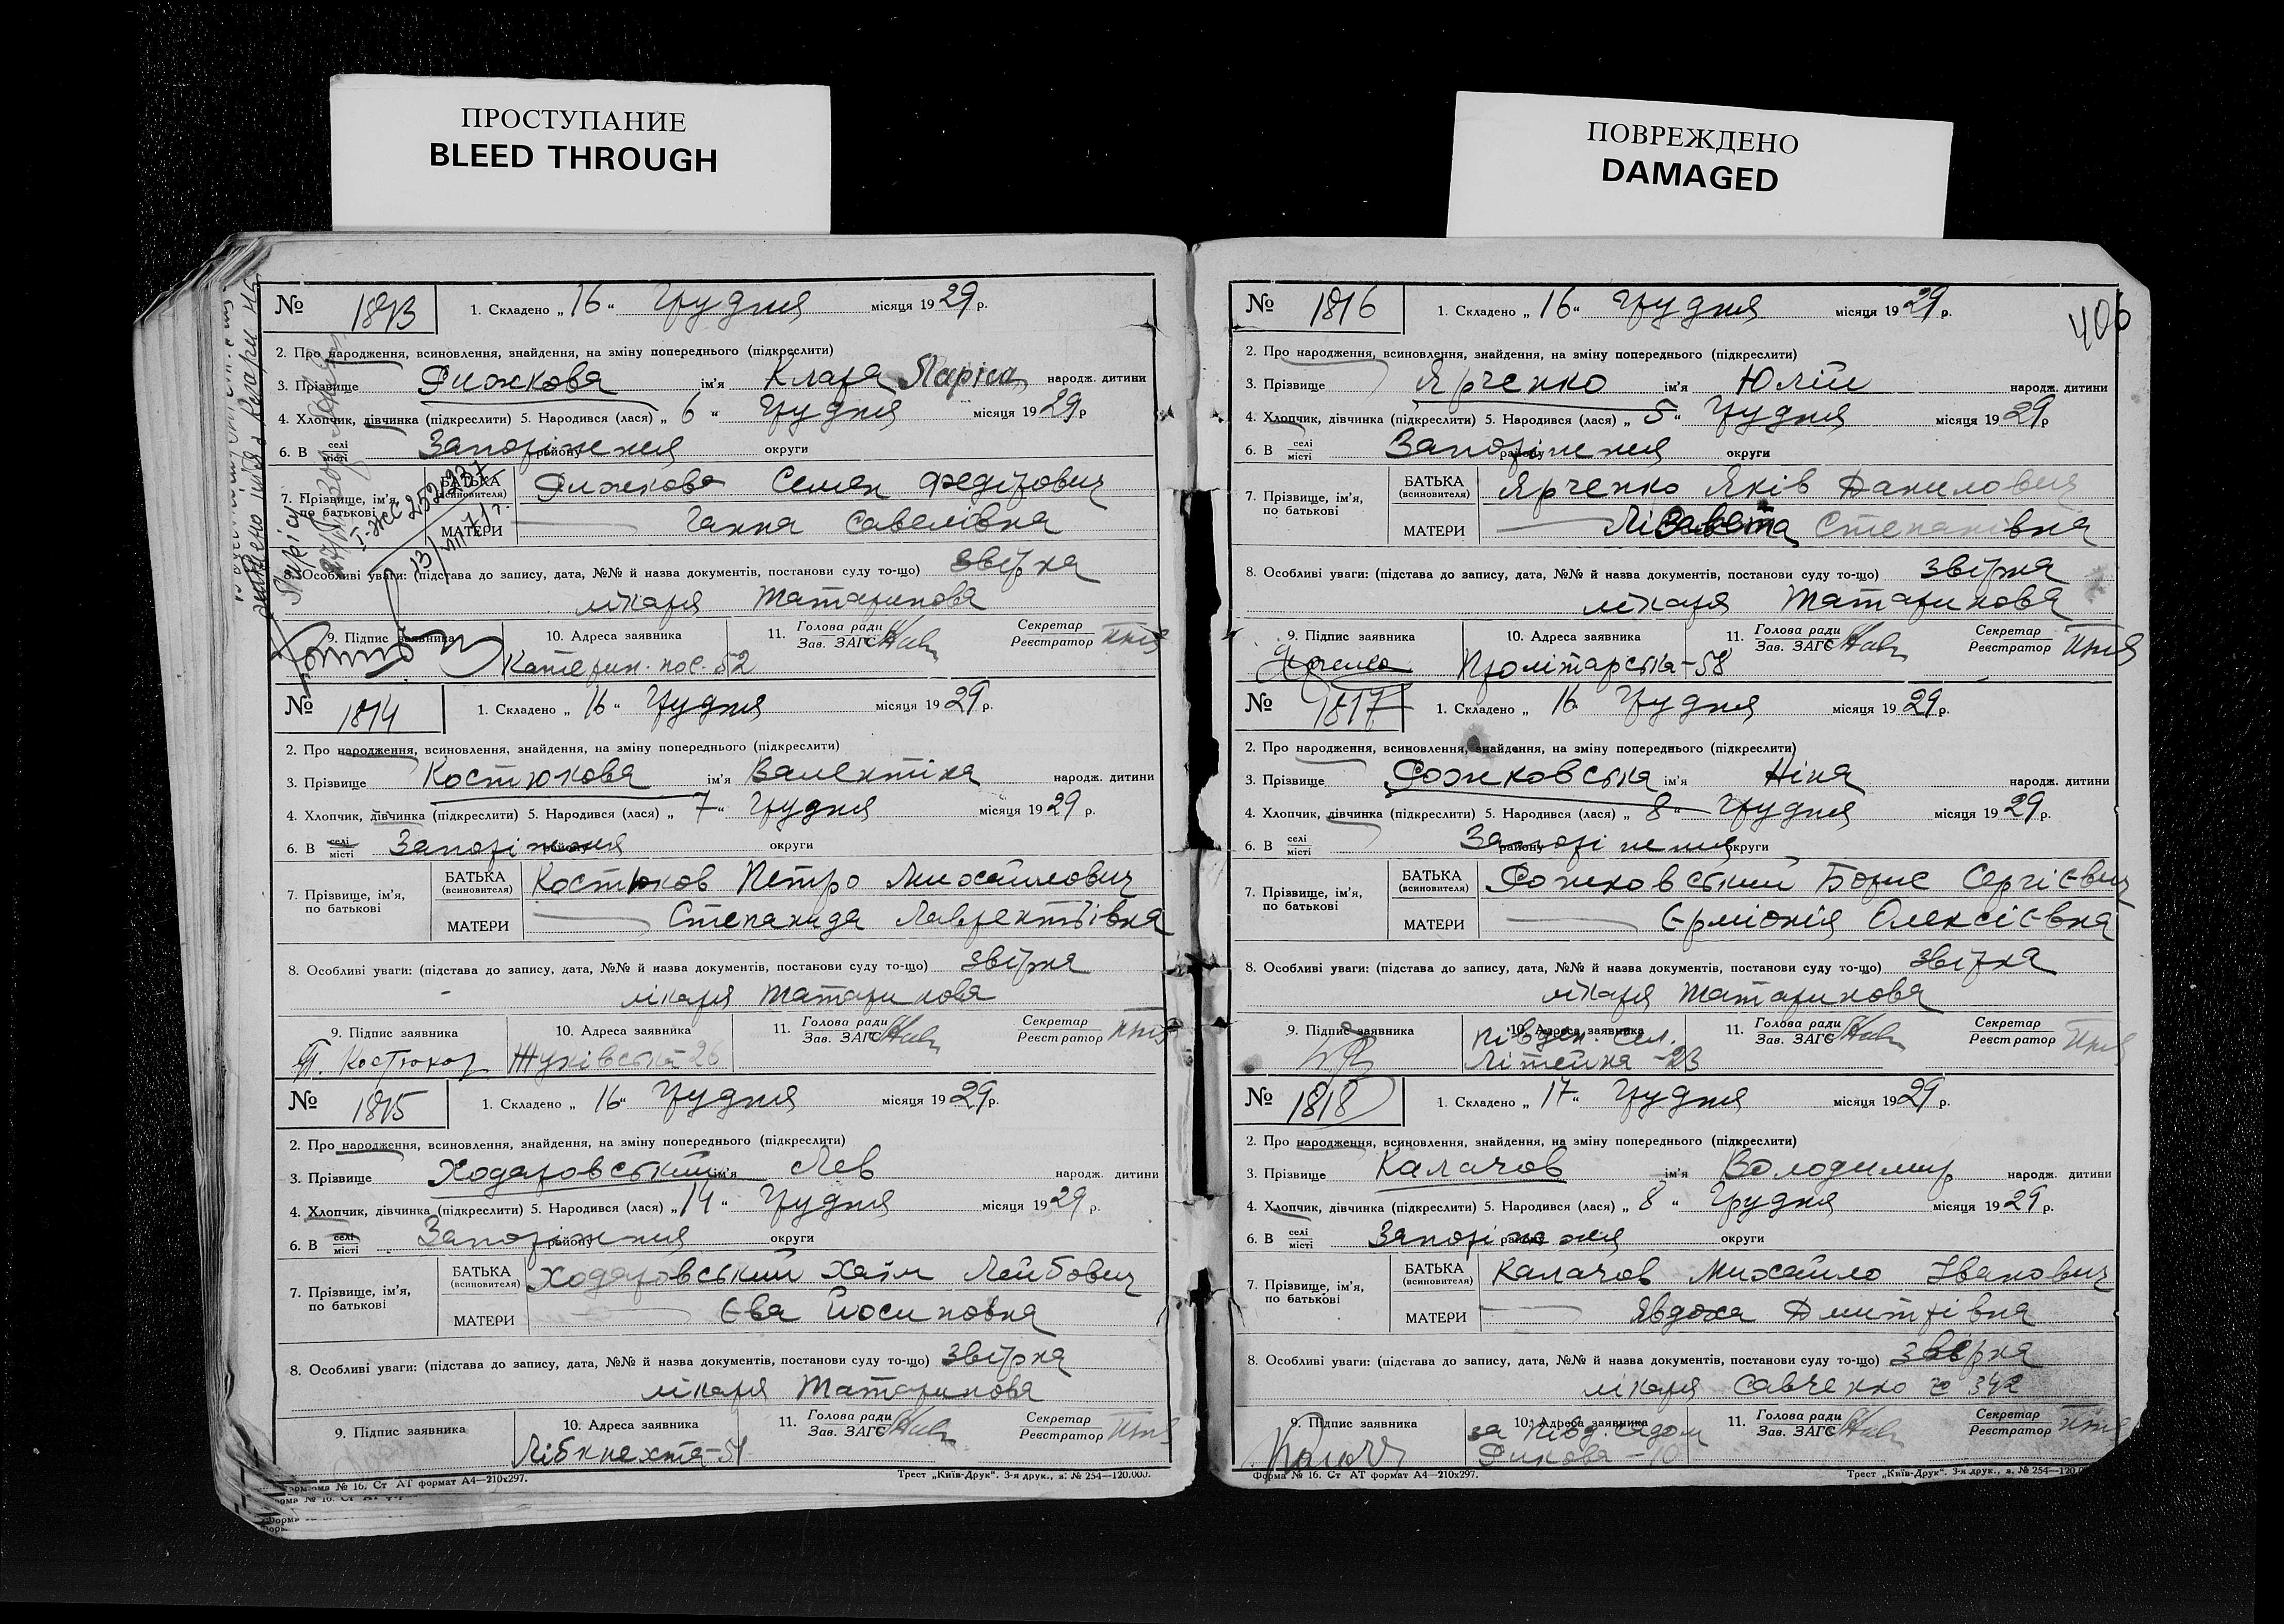 ПРОСТУПАНИЕ
BLEED THROUGH
ПОВРЕЖДЕНО
DAMAGED
№ 1813 1. Складено „ 16 “ Грудня місяця 1929 р.
2. Про народження, всиновлення, знайдення, на зміну попереднього (підкреслити)
3. Прізвище Рижкова ім'я Клара Лариса народж. дитини
4. Хлопчик, дівчинка (підкреслити) 5. Народився (лася) „ 6 “ Грудня місяця 1929 р
6. В селі місті Запоріжжя району округи
7. Прізвище, ім'я, по батькові БАТЬКА (всиновителя) Рижков Семен Федорович
МАТЕРИ Ганна Савелівна
8. Особливі уваги: (підстава до запису, дата, №№ й назва документів, постанови суду то-що) звірка
лікаря Татаринова
9. Підпис заявника 10. Адреса заявника 11. Голова ради Зав. ЗАГС Секретар Реєстратор
Катерин. пос. 52
№ 1814 1. Складено „ 16 “ Грудня місяця 1929 р.
2. Про народження, всиновлення, знайдення, на зміну попереднього (підкреслити)
3. Прізвище Костюкова ім'я Валентіна народж. дитини
4. Хлопчик, дівчинка (підкреслити) 5. Народився (лася) „ 7 “ Грудня місяця 1929 р.
6. В селі місті Запоріжжя району округи
7. Прізвище, ім'я, по батькові БАТЬКА (всиновителя) Костюков Петро Михайлович
МАТЕРИ Степанида Лаврентіївна
8. Особливі уваги: (підстава до запису, дата, №№ й назва документів, постанови суду то-що) звірка
лікаря Татаринова
9. Підпис заявника 10. Адреса заявника 11. Голова ради Зав. ЗАГС Секретар Реєстратор
П. Костюков Жуківська 26
№ 1815 1. Складено „ 16 “ Грудня місяця 1929 р.
2. Про народження, всиновлення, знайдення, на зміну попереднього (підкреслити)
3. Прізвище Ходаровський ім'я Лев народж. дитини
4. Хлопчик, дівчинка (підкреслити) 5. Народився (лася) „ 14 “ Грудня місяця 1929 р.
6. В селі місті Запоріжжя району округи
7. Прізвище, ім'я, по батькові БАТЬКА (всиновителя) Ходаровський Хаїм Лейбович
МАТЕРИ Єва Йосиповна
8. Особливі уваги: (підстава до запису, дата, №№ й назва документів, постанови суду то-що) звірка
лікаря Татаринова
9. Підпис заявника 10. Адреса заявника 11. Голова ради Зав. ЗАГС Секретар Реєстратор
Лібкнехта-51
Форма № 16. Ст АТ формат А4—210х297. Трест „Київ-Друк“. 3-я друк., з. № 254—120.000.
406
№ 1816 1. Складено „ 16 “ Грудня місяця 1929 р.
2. Про народження, всиновлення, знайдення, на зміну попереднього (підкреслити)
3. Прізвище Ярченко ім'я Юлій народж. дитини
4. Хлопчик, дівчинка (підкреслити) 5. Народився (лася) „ 5 “ Грудня місяця 1929 р
6. В селі місті Запоріжжя району округи
7. Прізвище, ім'я, по батькові БАТЬКА (всиновителя) Ярченко Яків Данилович
МАТЕРИ Лізавета Степанівна
8. Особливі уваги: (підстава до запису, дата, №№ й назва документів, постанови суду то-що) звірка
лікаря Татаринова
9. Підпис заявника 10. Адреса заявника 11. Голова ради Зав. ЗАГС Секретар Реєстратор
Ярченко Пролітарська-58
№ 1817 1. Складено „ 16 “ Грудня місяця 1929 р.
2. Про народження, всиновлення, знайдення, на зміну попереднього (підкреслити)
3. Прізвище Рожковська ім'я Ніна народж. дитини
4. Хлопчик, дівчинка (підкреслити) 5. Народився (лася) „ 8 “ Грудня місяця 1929 р.
6. В селі місті Запоріжжя району округи
7. Прізвище, ім'я, по батькові БАТЬКА (всиновителя) Рожковський Борис Сергієвич
МАТЕРИ Єрміонія Олексієвна
8. Особливі уваги: (підстава до запису, дата, №№ й назва документів, постанови суду то-що) звірка
лікаря Татаринова
9. Підпис заявника 10. Адреса заявника 11. Голова ради Зав. ЗАГС Секретар Реєстратор
Півден. сел.
Літейна -23
№ 1818 1. Складено „ 17 “ Грудня місяця 1929 р.
2. Про народження, всиновлення, знайдення, на зміну попереднього (підкреслити)
3. Прізвище Калачов ім'я Володимир народж. дитини
4. Хлопчик, дівчинка (підкреслити) 5. Народився (лася) „ 8 “ Грудня місяця 1929 р.
6. В селі місті Запоріжжя району округи
7. Прізвище, ім'я, по батькові БАТЬКА (всиновителя) Калачов Михайло Іванович
МАТЕРИ Явдоха Дмитрівна
8. Особливі уваги: (підстава до запису, дата, №№ й назва документів, постанови суду то-що) звірка
лікаря Савченко 342
9. Підпис заявника 10. Адреса заявника 11. Голова ради Зав. ЗАГС Секретар Реєстратор
за Півд. садом
Форма № 16. Ст АТ формат А4—210х297. Трест „Київ-Друк“. 3-я друк., з. № 254—120.0